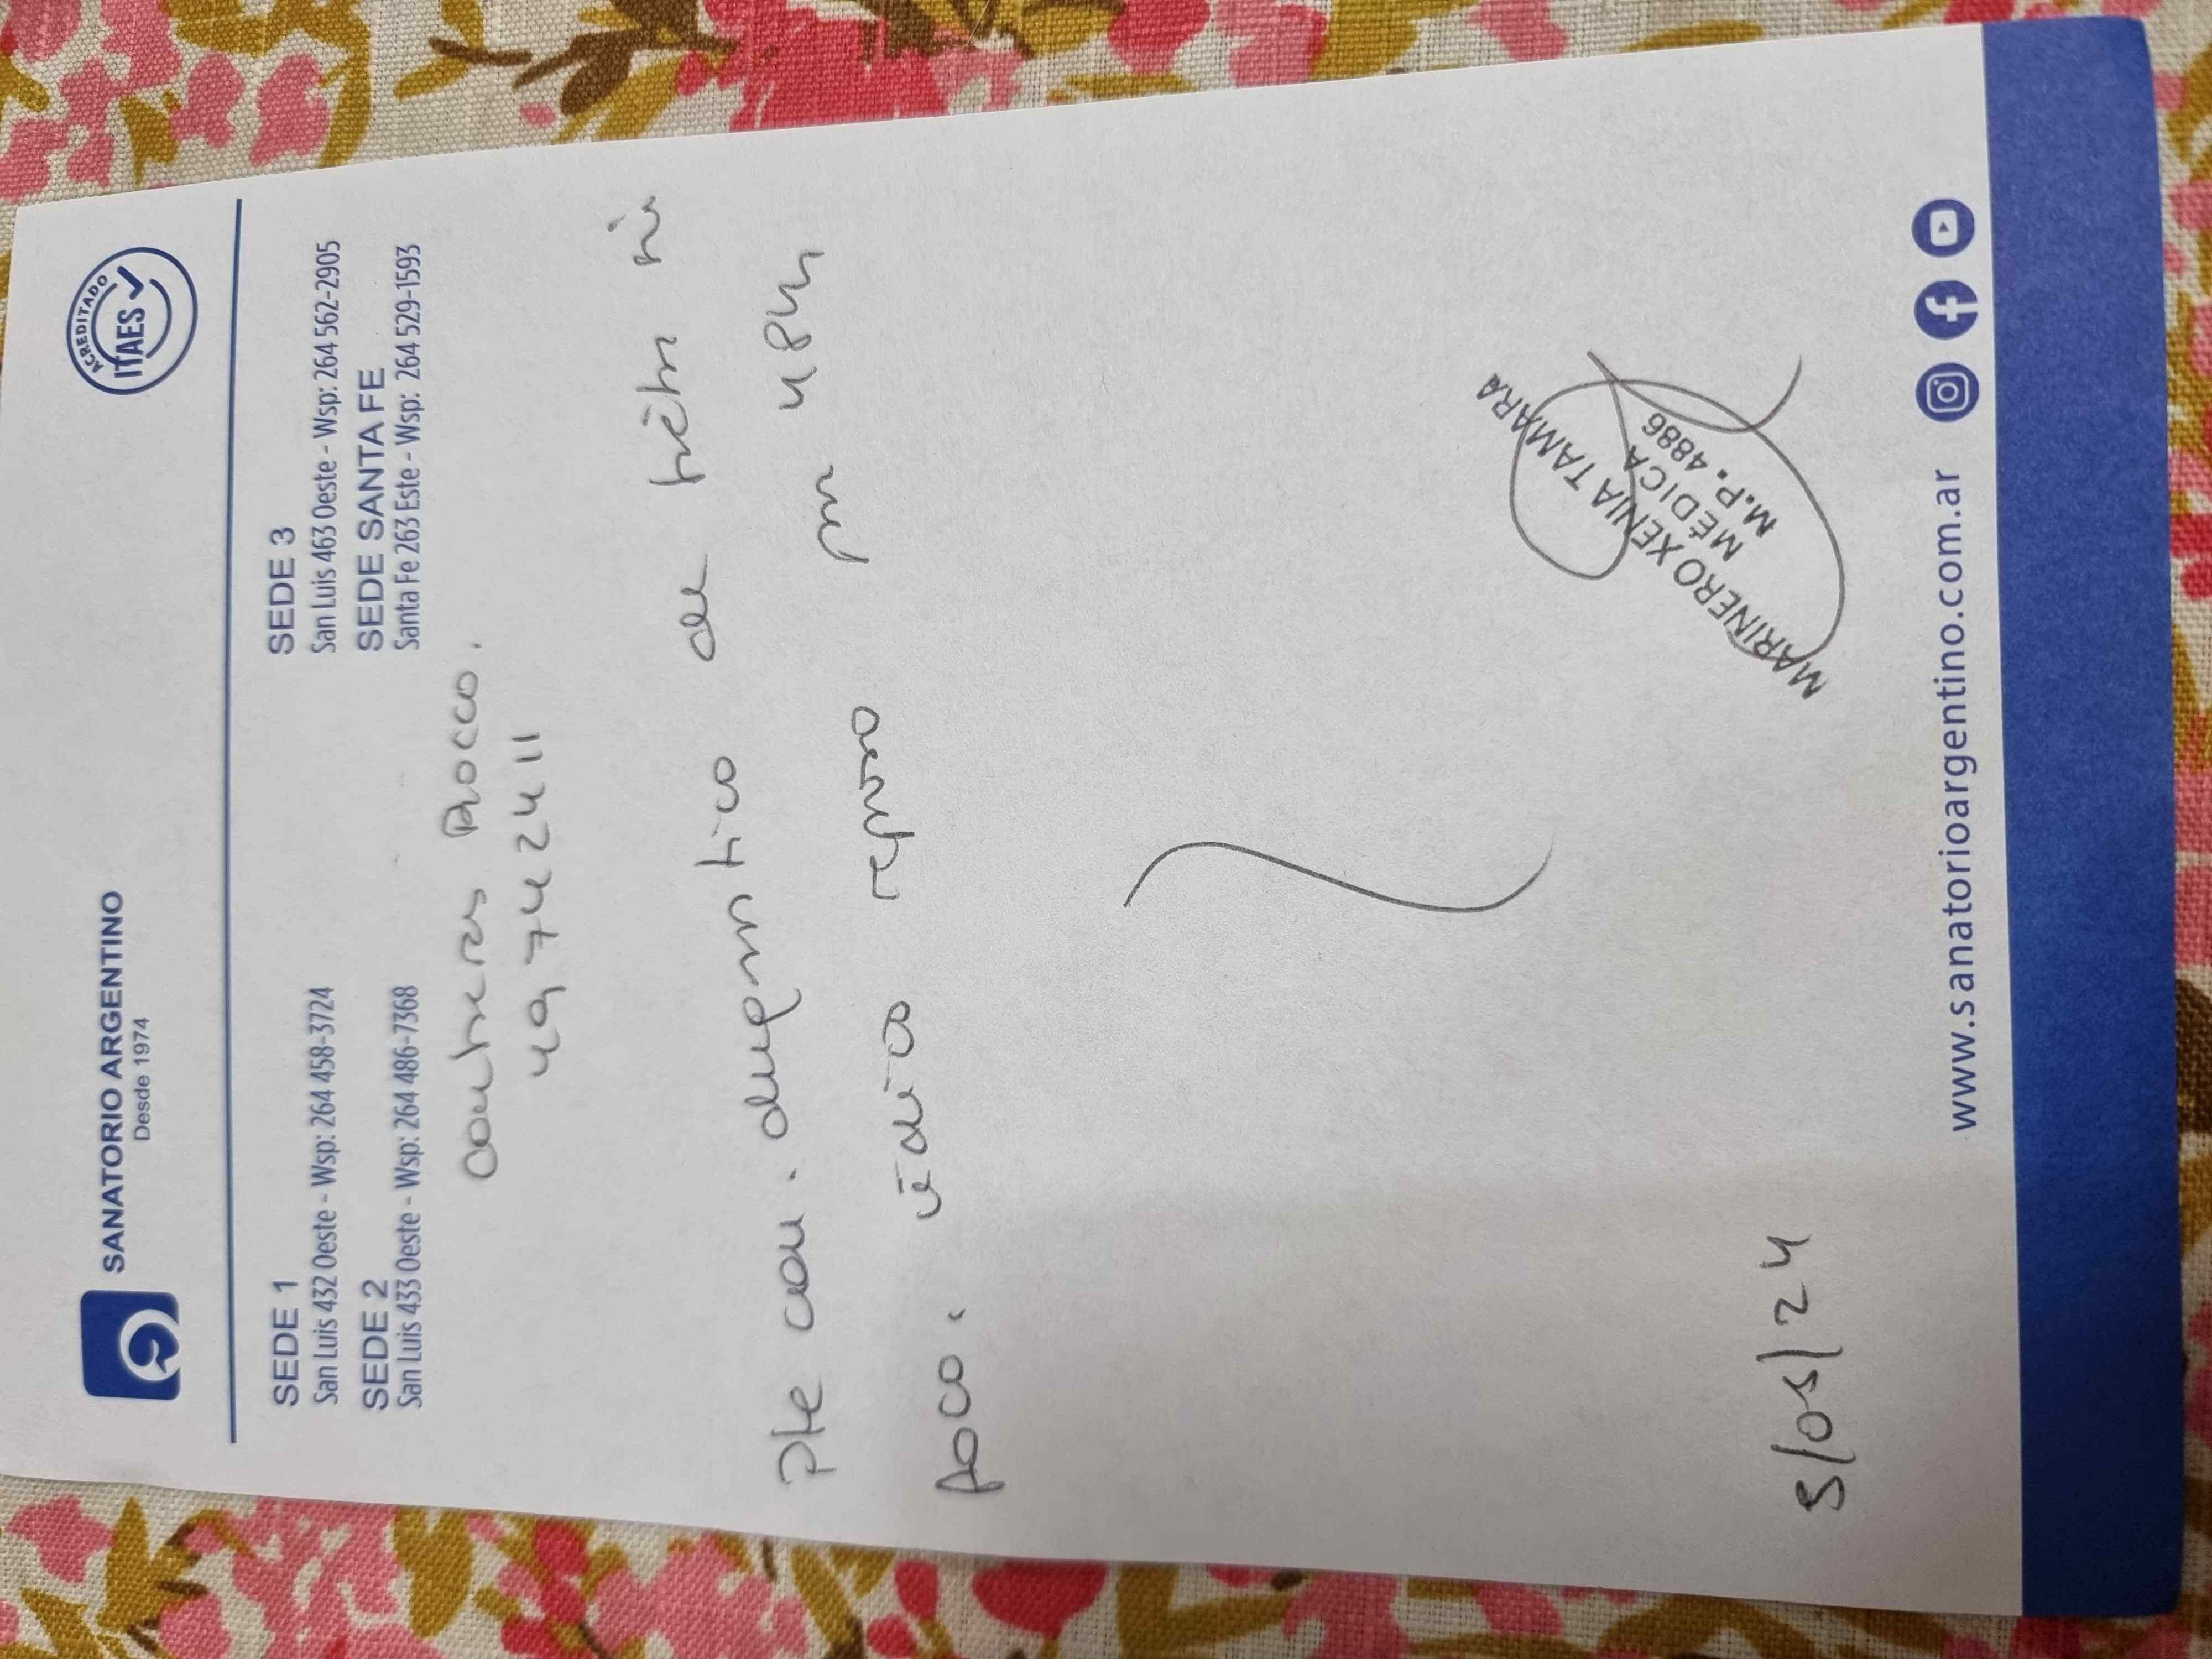 SANATORIO ARGENTINO
Desde 1974
ACREDITADO
ITAES
SEDE 1
San Luis 432 Oeste - Wsp: 264 458-3724
SEDE 2
San Luis 433 Oeste - Wsp: 264 486-7368
SEDE 3
San Luis 463 Oeste - Wsp: 264 562-2905
SEDE SANTA FE
Santa Fe 263 Este - Wsp: 264 529-1593
Contreras Rocco.
49742411
Pte con. diagnostico de
reposo por 48hs
5/05/24
MARINERO XENIA TAMARA
MÉDICA
M.P. 4886
www.sanatorioargentino.com.ar